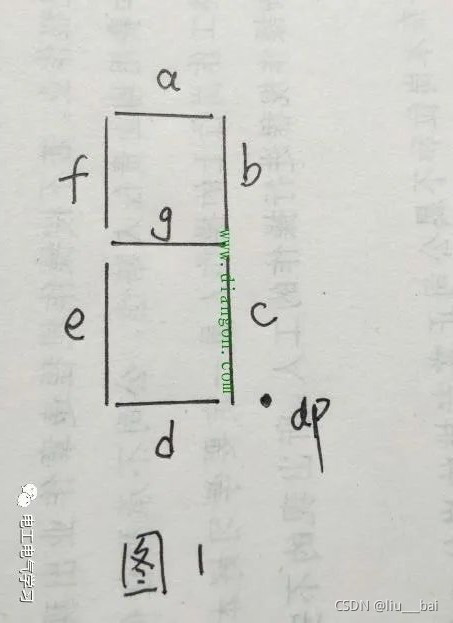 a
f
b
g
e
c
d
dp
图1
www.diangon.com
电工电气学习
CSDN @liu___bai